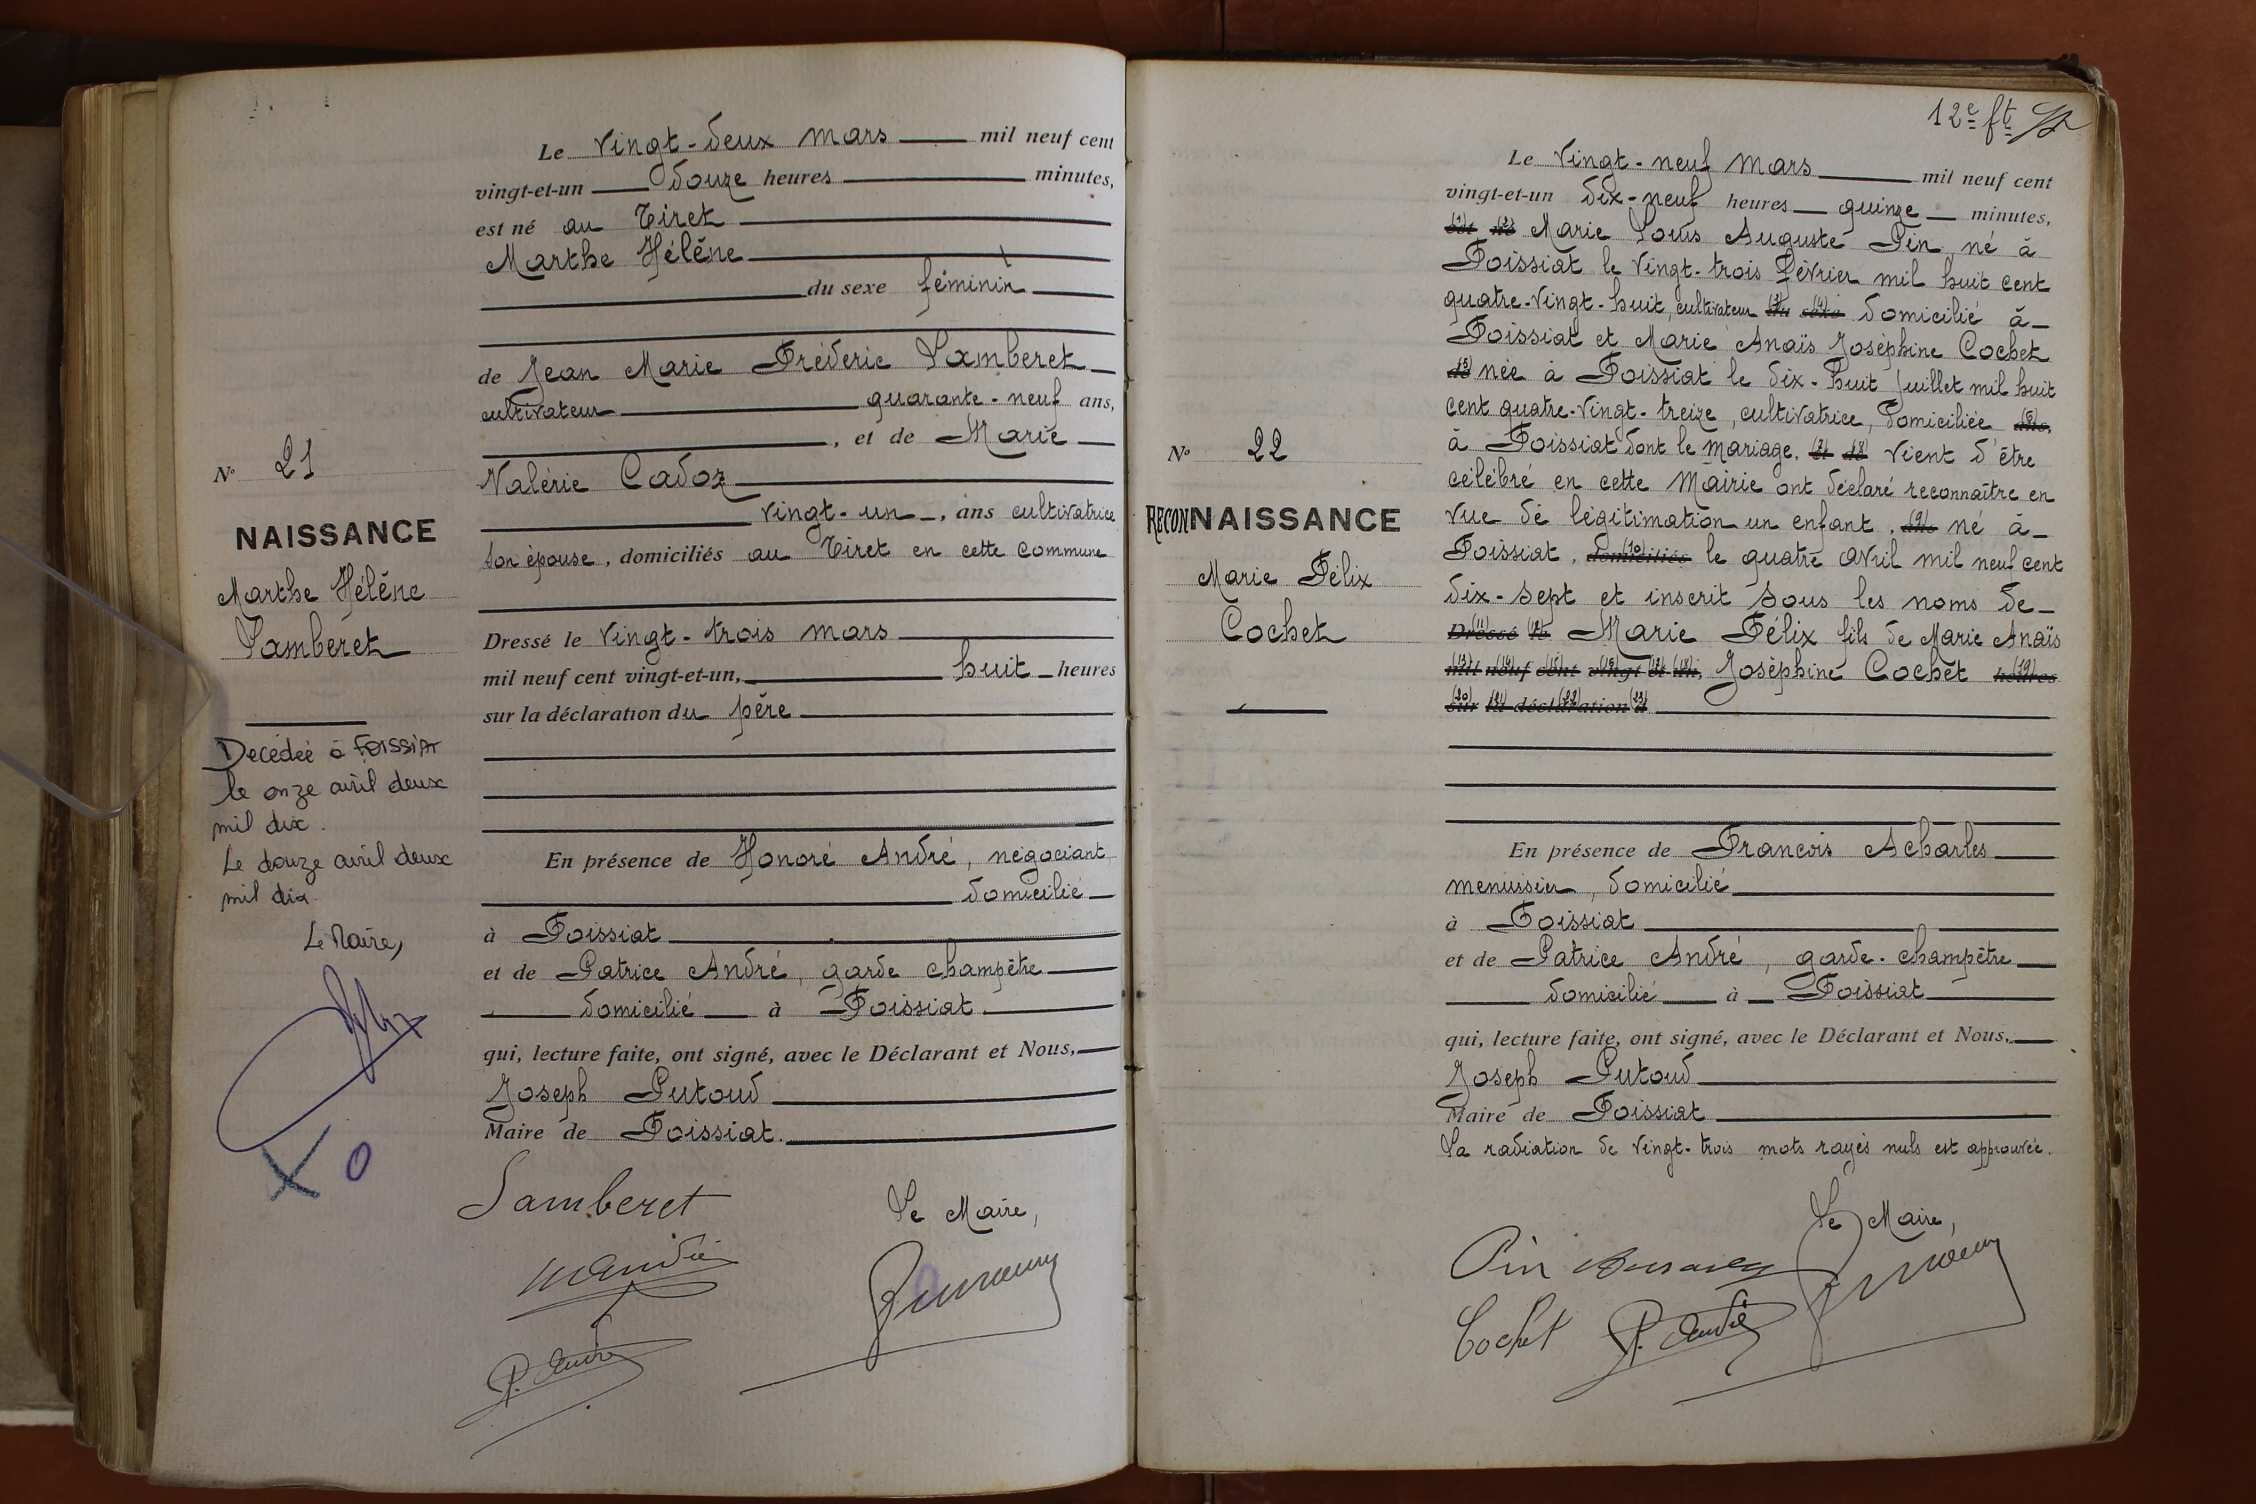 Le vingt-deux mars mil neuf cent
vingt-et-un douze heures minutes,
est né au Tiret
Marthe Hélène
du sexe féminin
de Jean Marie Fréderic Lamberet
cultivateur quarante-neuf ans,
, et de Marie
Valérie Cadoz
vingt-un, ans cultivatrice
son épouse, domiciliés au Tiret en cette commune
Dressé le vingt-trois mars
mil neuf cent vingt-et-un, huit heures
sur la déclaration du père
En présence de Honoré André, négociant
domicilié
à Foissiat
et de Patrice André, garde champêtre
domicilié à Foissiat
qui, lecture faite, ont signé, avec le Déclarant et Nous,
Joseph Putoud
Maire de Foissiat.
Lamberet
Le Maire,
P. André
No 21
NAISSANCE
Marthe Hélène
Lamberet
Decédée à FOISSIAT
le onze avril deux
mil dix.
Le douze avril deux
mil dix.
Le Maire,
X 0
12e ft
Le vingt-neuf mars mil neuf cent
vingt-et-un dix-neuf heures quinze minutes,
(1) est (2) né Marie Louis Auguste Pin né à
Foissiat le vingt-trois février mil huit cent
quatre-vingt-huit, cultivateur (3) (4) domicilié à
Foissiat et Marie Anaïs Joséphine Cochet
(5) de née à Foissiat le dix-huit juillet mil huit
cent quatre-vingt-treize, cultivatrice, domiciliée (6) ans,
à Foissiat dont le mariage. (7) et (8) de vient d'être
célébré en cette Mairie ont déclaré reconnaître en
vue de légitimation un enfant, (9) ans né à
Foissiat, (10) domiciliés le quatre avril mil neuf cent
dix-sept et inscrit sous les noms de
(11) Dressé (12) le Marie Félix fils de Marie Anaïs
(13) mil (14) neuf (15) cent (16) vingt (17) et (18) un, Joséphine Cochet (19) heures
(20) sur (21) la (22) déclaration (23) d
En présence de François Acharles
menuisier, domicilié
à Foissiat
et de Patrice André, garde-champêtre
domicilié à Foissiat
qui, lecture faite, ont signé, avec le Déclarant et Nous,
Joseph Putoud
Maire de Foissiat
La radiation de vingt-trois mots rayés nuls est approuvée.
Le Maire,
Pin
Cochet P. André
No 22
RECONNAISSANCE
Marie Félix
Cochet